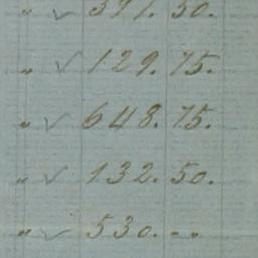 " ✓ 391. 50.
" ✓ 129. 75.
" ✓ 648. 75.
" ✓ 132. 50.
" ✓ 530. - -